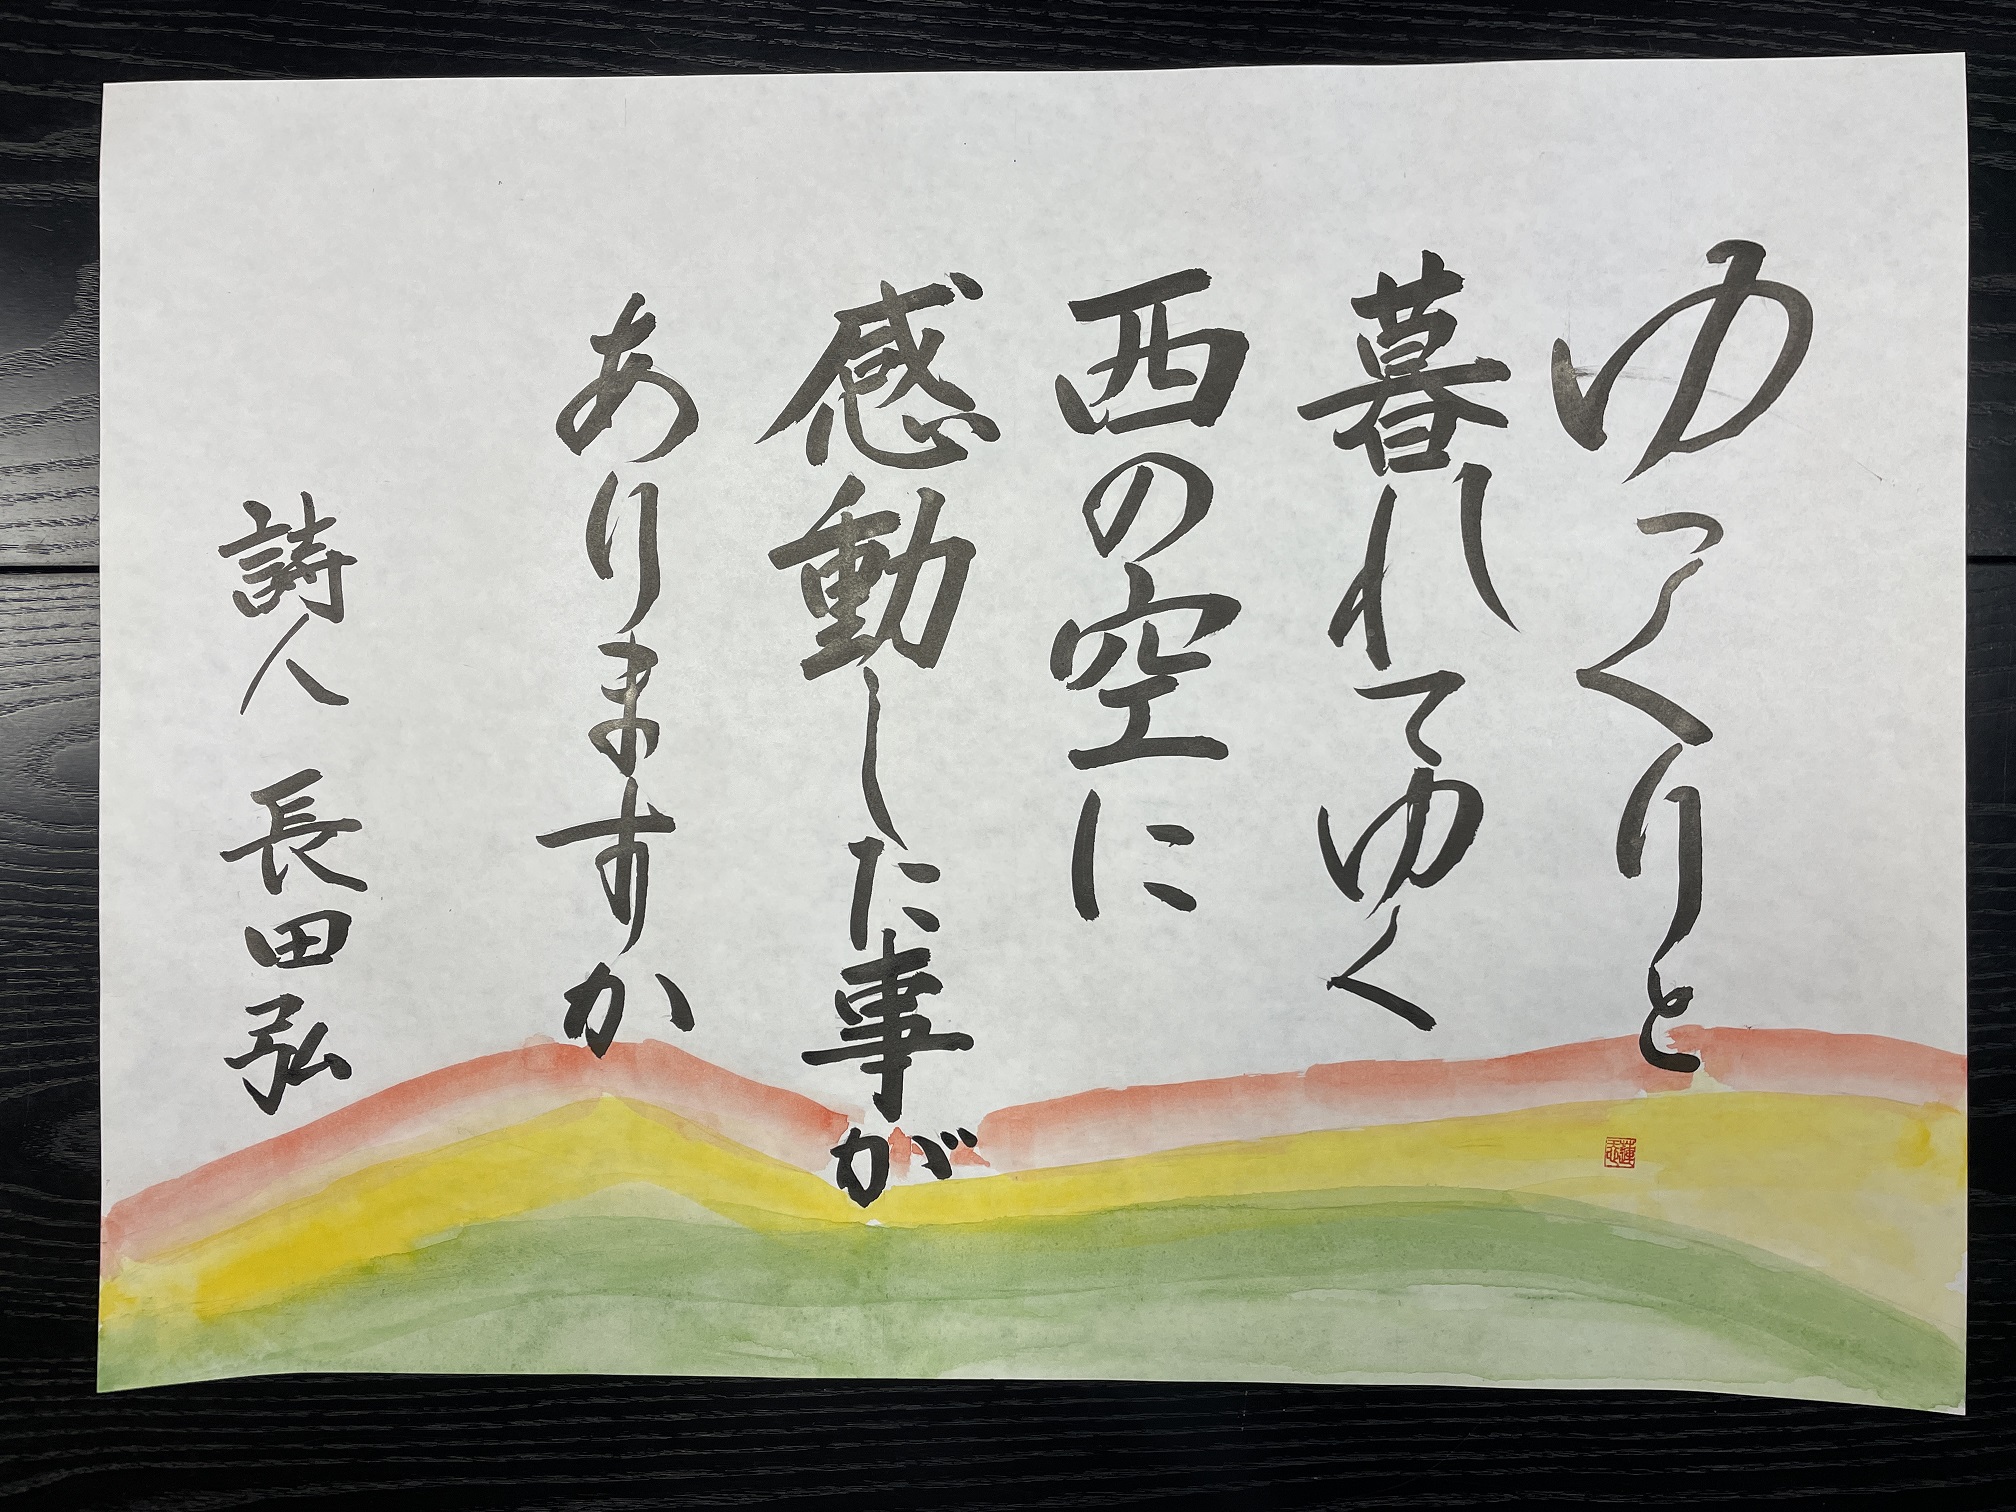 ゆっくりと
暮れてゆく
西の空に
感動した事が
ありますか
詩人 長田弘